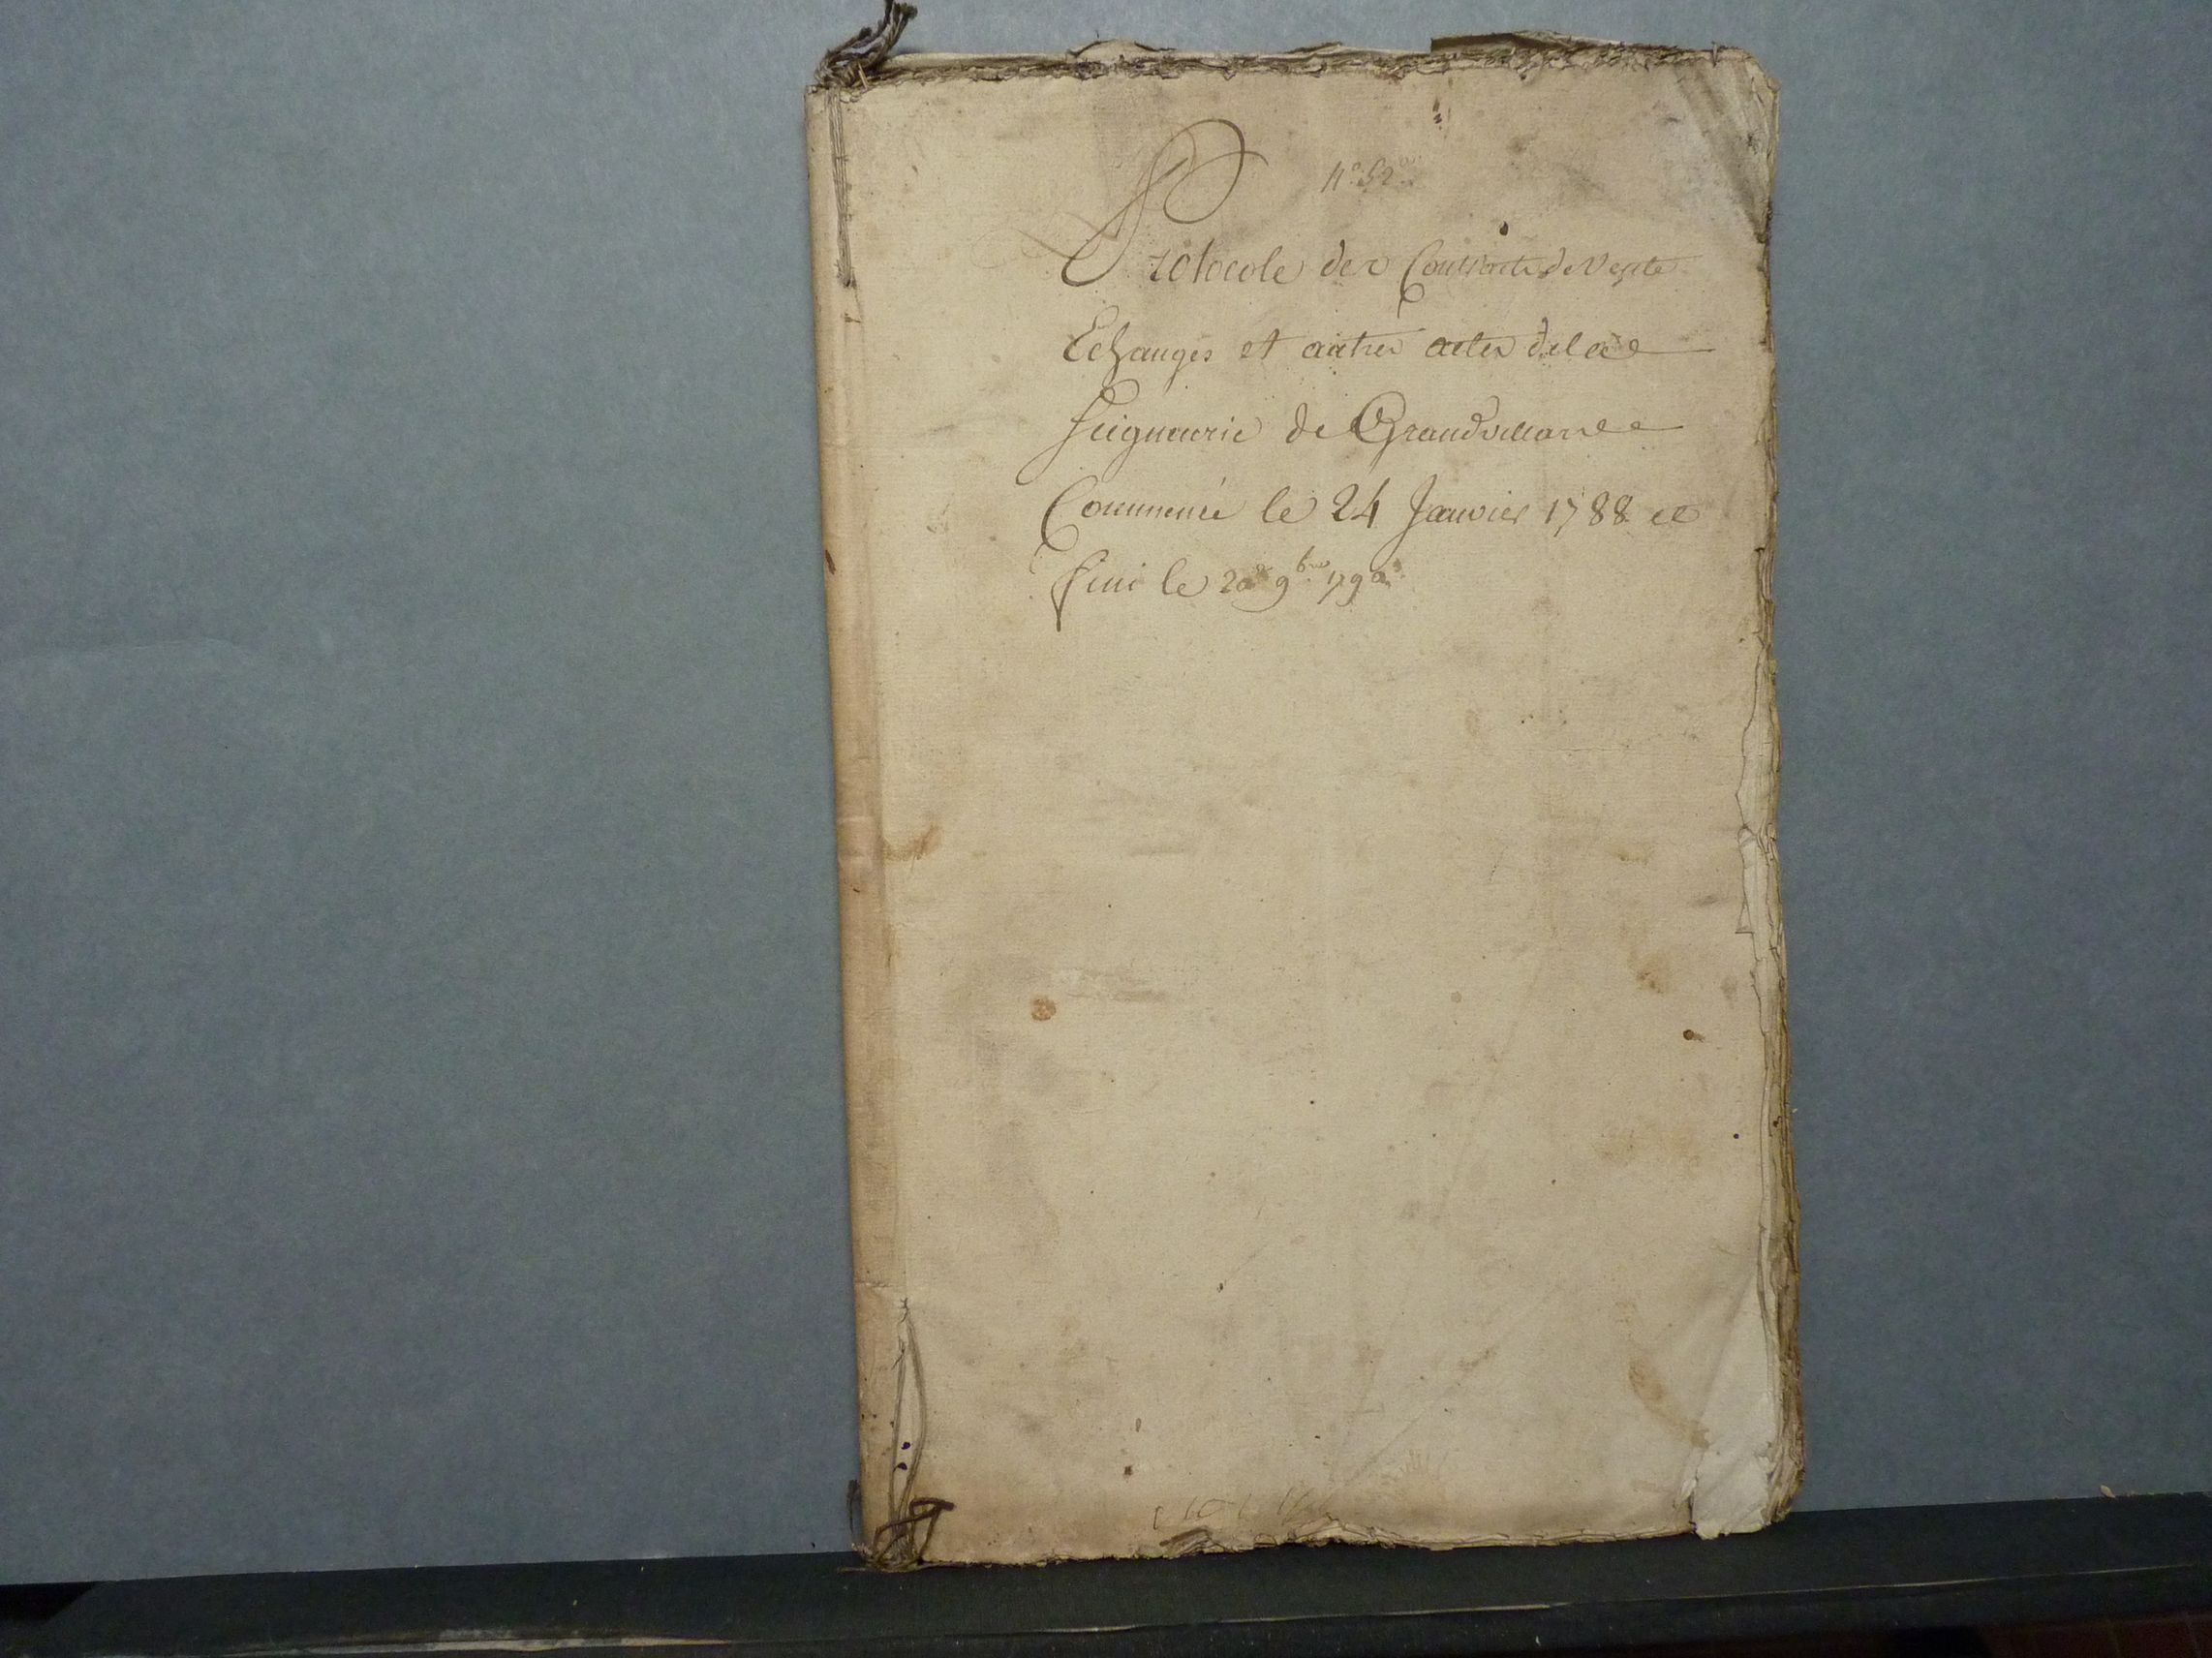 N.° 52.
Protocole des Contracts de Vente
Echanges et autres actes de la
Seigneurie de Grandvillars
Commencé le 24 Janvier 1788 et
fini le 20 9.bre 1790